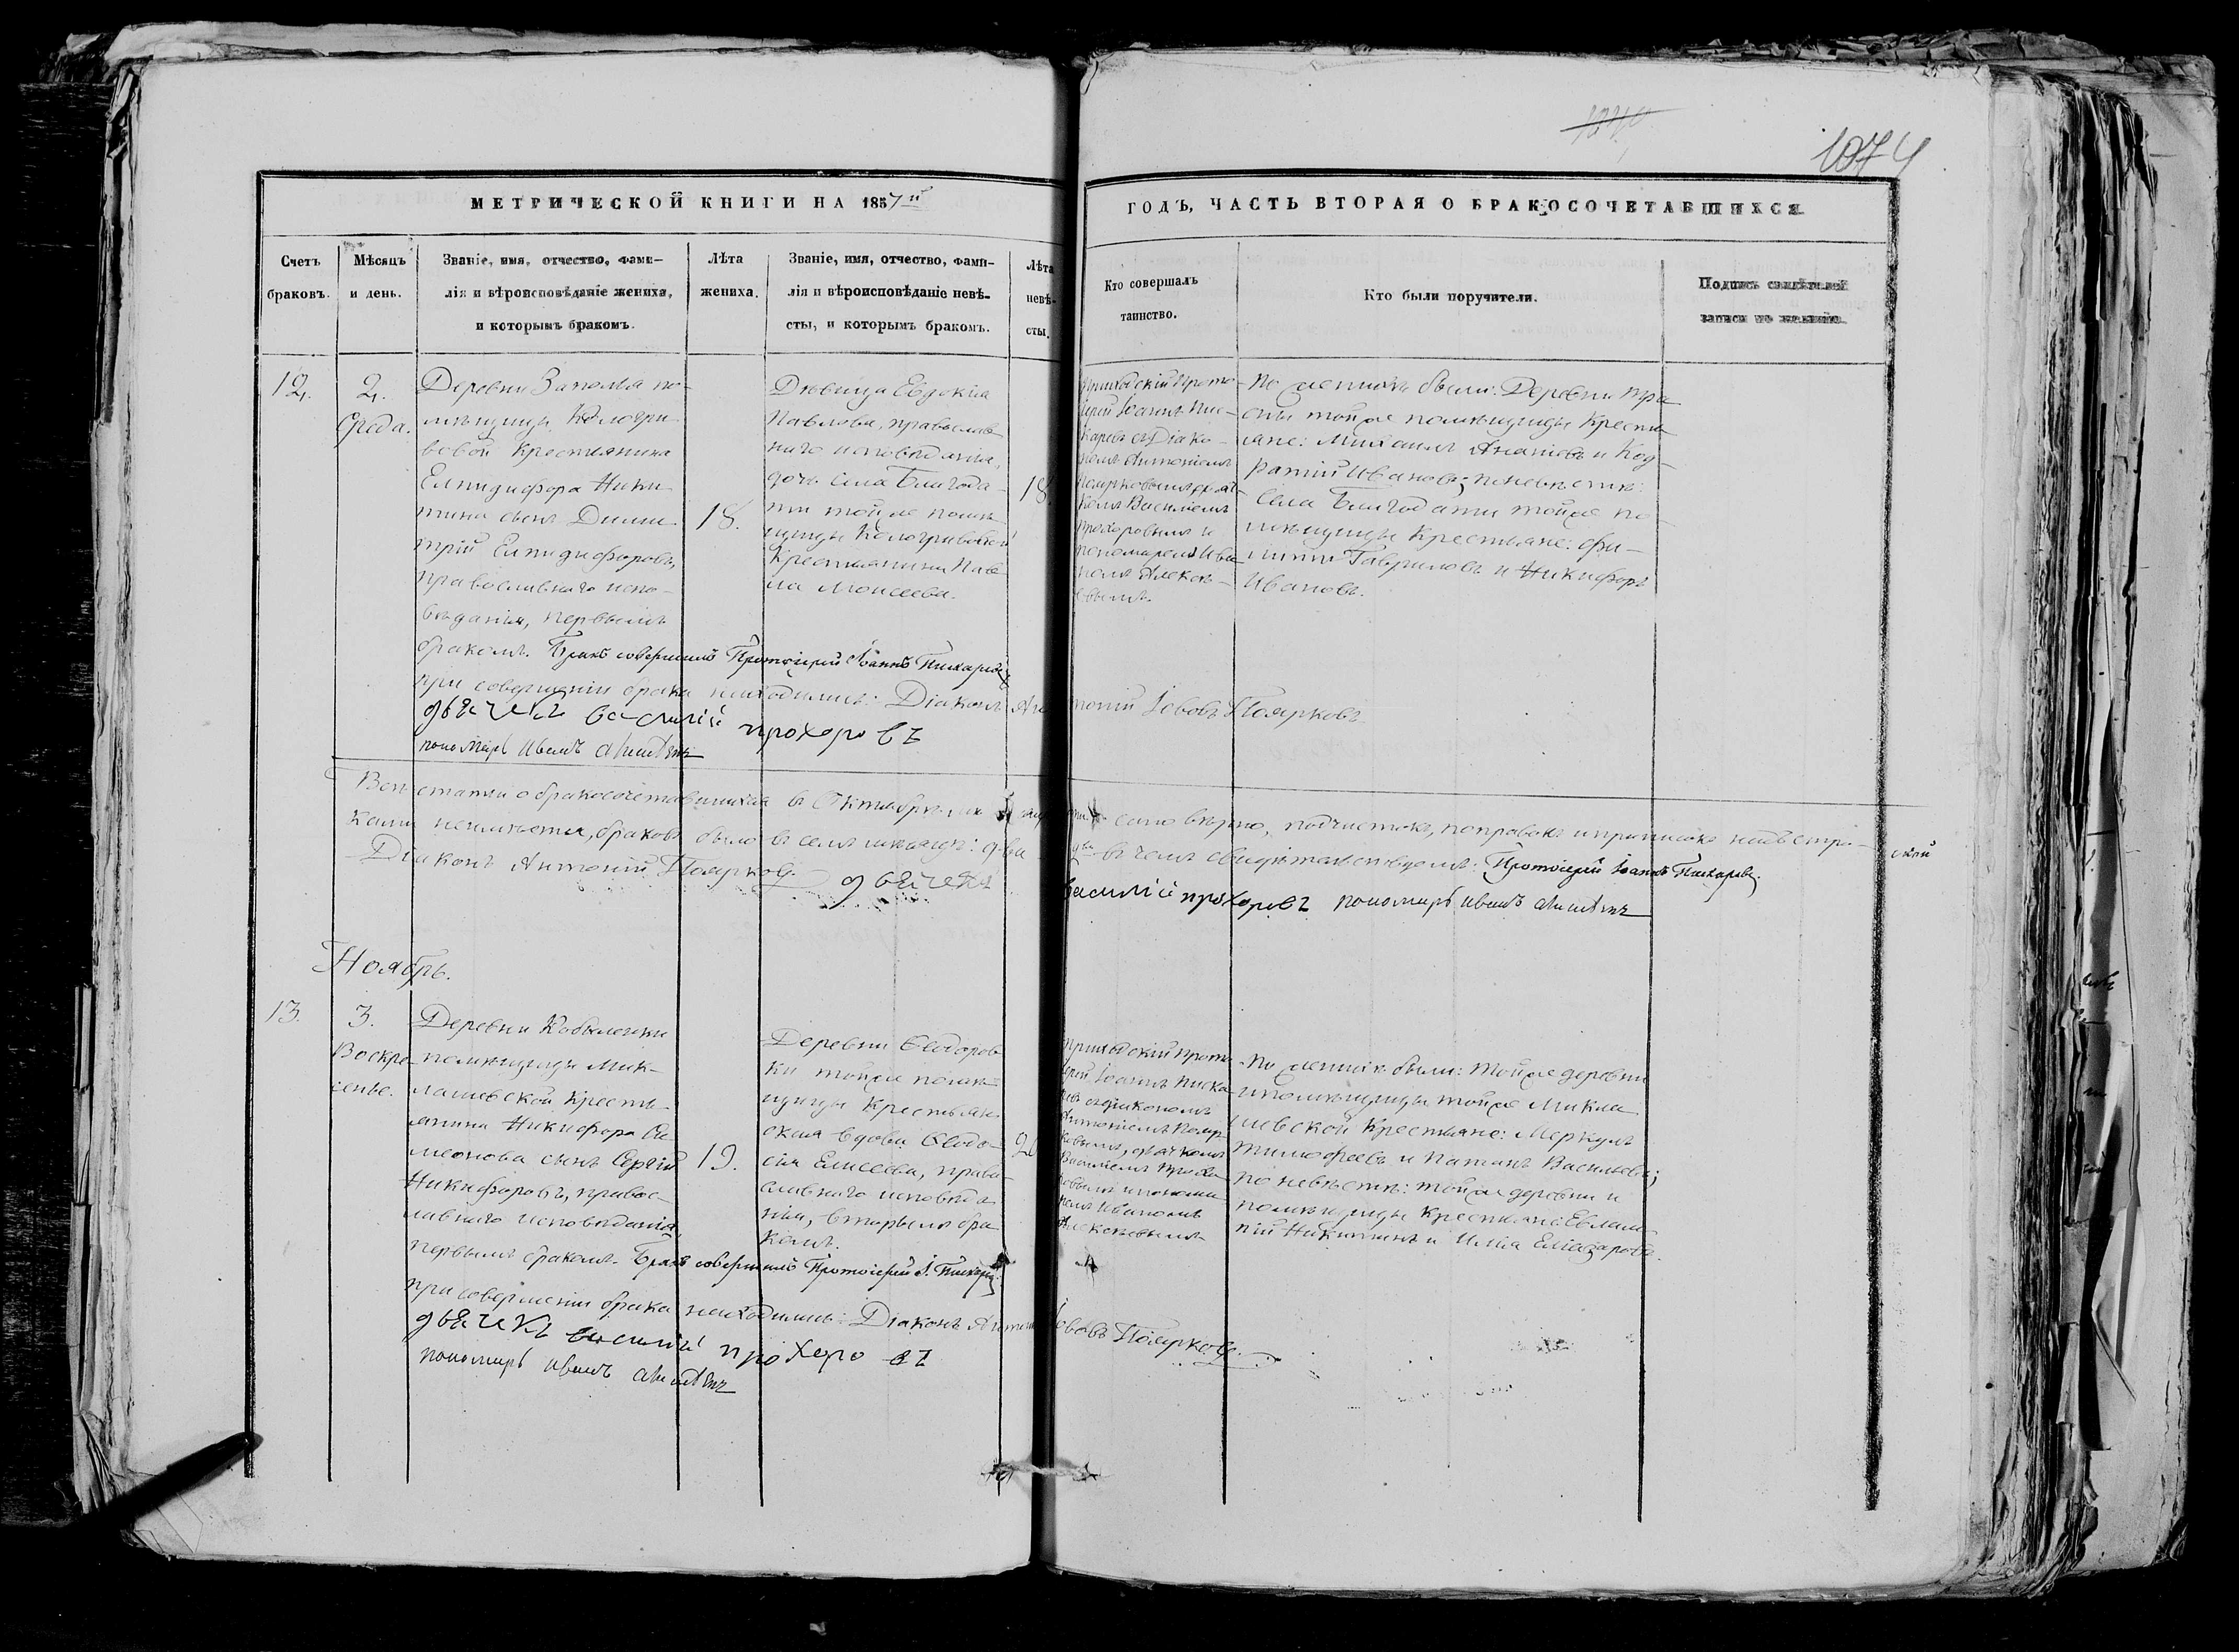 1074
МЕТРИЧЕСКОЙ КНИГИ НА 1857й
ГОДЪ, ЧАСТЬ ВТОРАЯ О БРАКОСОЧЕТАВШИХСЯ
Счетъ
браковъ.
Мѣсяцъ
и день.
Званіе, имя, отчество, фами-
лія и вѣроисповѣданіе жениха,
и которымъ бракомъ.
Лѣта
жениха.
Званіе, имя, отчество, фами-
лія и вѣроисповѣданіе невѣ-
сты, и которымъ бракомъ.
Лѣта
невѣ-
сты.
Кто совершалъ
таинство.
Кто были поручители.
Подпись свидѣтелей
записи по желанію.
12.
2.
Среда.
Деревни Заполья по-
мѣщицы Кологри-
вовой Крестьянина
Елпидифора Ники-
тина сынъ Дими-
трій Елпидифоровъ,
православнаго испо-
вѣданія, первымъ
бракомъ.
18.
Дѣвица Евдокія
Павлова, православ
наго исповѣданія,
дочь села Благода-
ти той же помѣ
щицы Кологривовой
Крестьянина Пав
ла Моисеева.
18
Приходскій Прото-
іерей Іоаннъ Пис-
каревъ съ Діако-
номъ Антоніемъ
Поярковымъ, дьяч
комъ Василіемъ
Прохоровымъ и
пономаремъ Ива
номъ Алексѣ-
евымъ.
По женихѣ были: Деревни
той же помѣщицы Крестья
яне: Михаилъ Ананьевъ и Код-
ратій Ивановъ; по невѣстѣ:
Села Благодати той же по-
мѣщицы Крестьяне: Фи-
липпъ Гавриловъ и Никифоръ
Ивановъ.
Бракъ совершилъ Протоіерей Іоаннъ Пискаревъ
при совершеніи брака находились: Діаконъ Антоній Іововъ Поярковъ
дьячекъ василій прохоровъ
пономарь иванъ
статьи о бракосочетавшихся въ Октябрѣ вѣрно, подчистокъ, поправокъ и приписокъ
неимѣется, браковъ было въ семъ мѣсяцѣ: два въ чемъ свидѣтельствуемъ: Протоіерей Іоаннъ Пискаревъ.
Діаконъ Антоній Поярковъ. дьячекъ василій прохоровъ пономарь иванъ
Ноябрь.
13.
3.
Воскре-
сенье.
Деревни Кобылочки
помѣщицы Мик-
лашевской Кресть-
янина Никифора Си-
меонова сынъ Сергій
Никифоровъ, правос-
лавнаго исповѣданія,
первымъ бракомъ.
19.
Деревни Ѳеодоров
ки той же помѣ
щицы Крестьян-
ская вдова Ѳеодо-
сія Елисеева, право-
славнаго исповѣда
нія, вторымъ бра-
комъ.
20
Приходскій прото
іерей Іоаннъ Писка-
ревъ съ діакономъ
Антоніемъ Пояр-
ковымъ, дьячкомъ
Василіемъ Прохо
ровымъ и понома
ремъ Иваномъ
Алексѣевымъ
По женихѣ были: Той же деревни
и помѣщицы той же Микла-
шевской Крестьяне: Меркулъ
Тимофеевъ и Патапъ Васильевъ;
по невѣстѣ: той же деревни и
помѣщицы Крестьяне: Евлам
пій Никитинъ и Илья Еліазаровъ.
Бракъ совершилъ Протоіерей І. Пискаревъ.
при совершеніи брака находились: Діаконъ Антоній Іововъ Поярковъ.
дьячекъ василій прохоровъ
пономарь иванъ